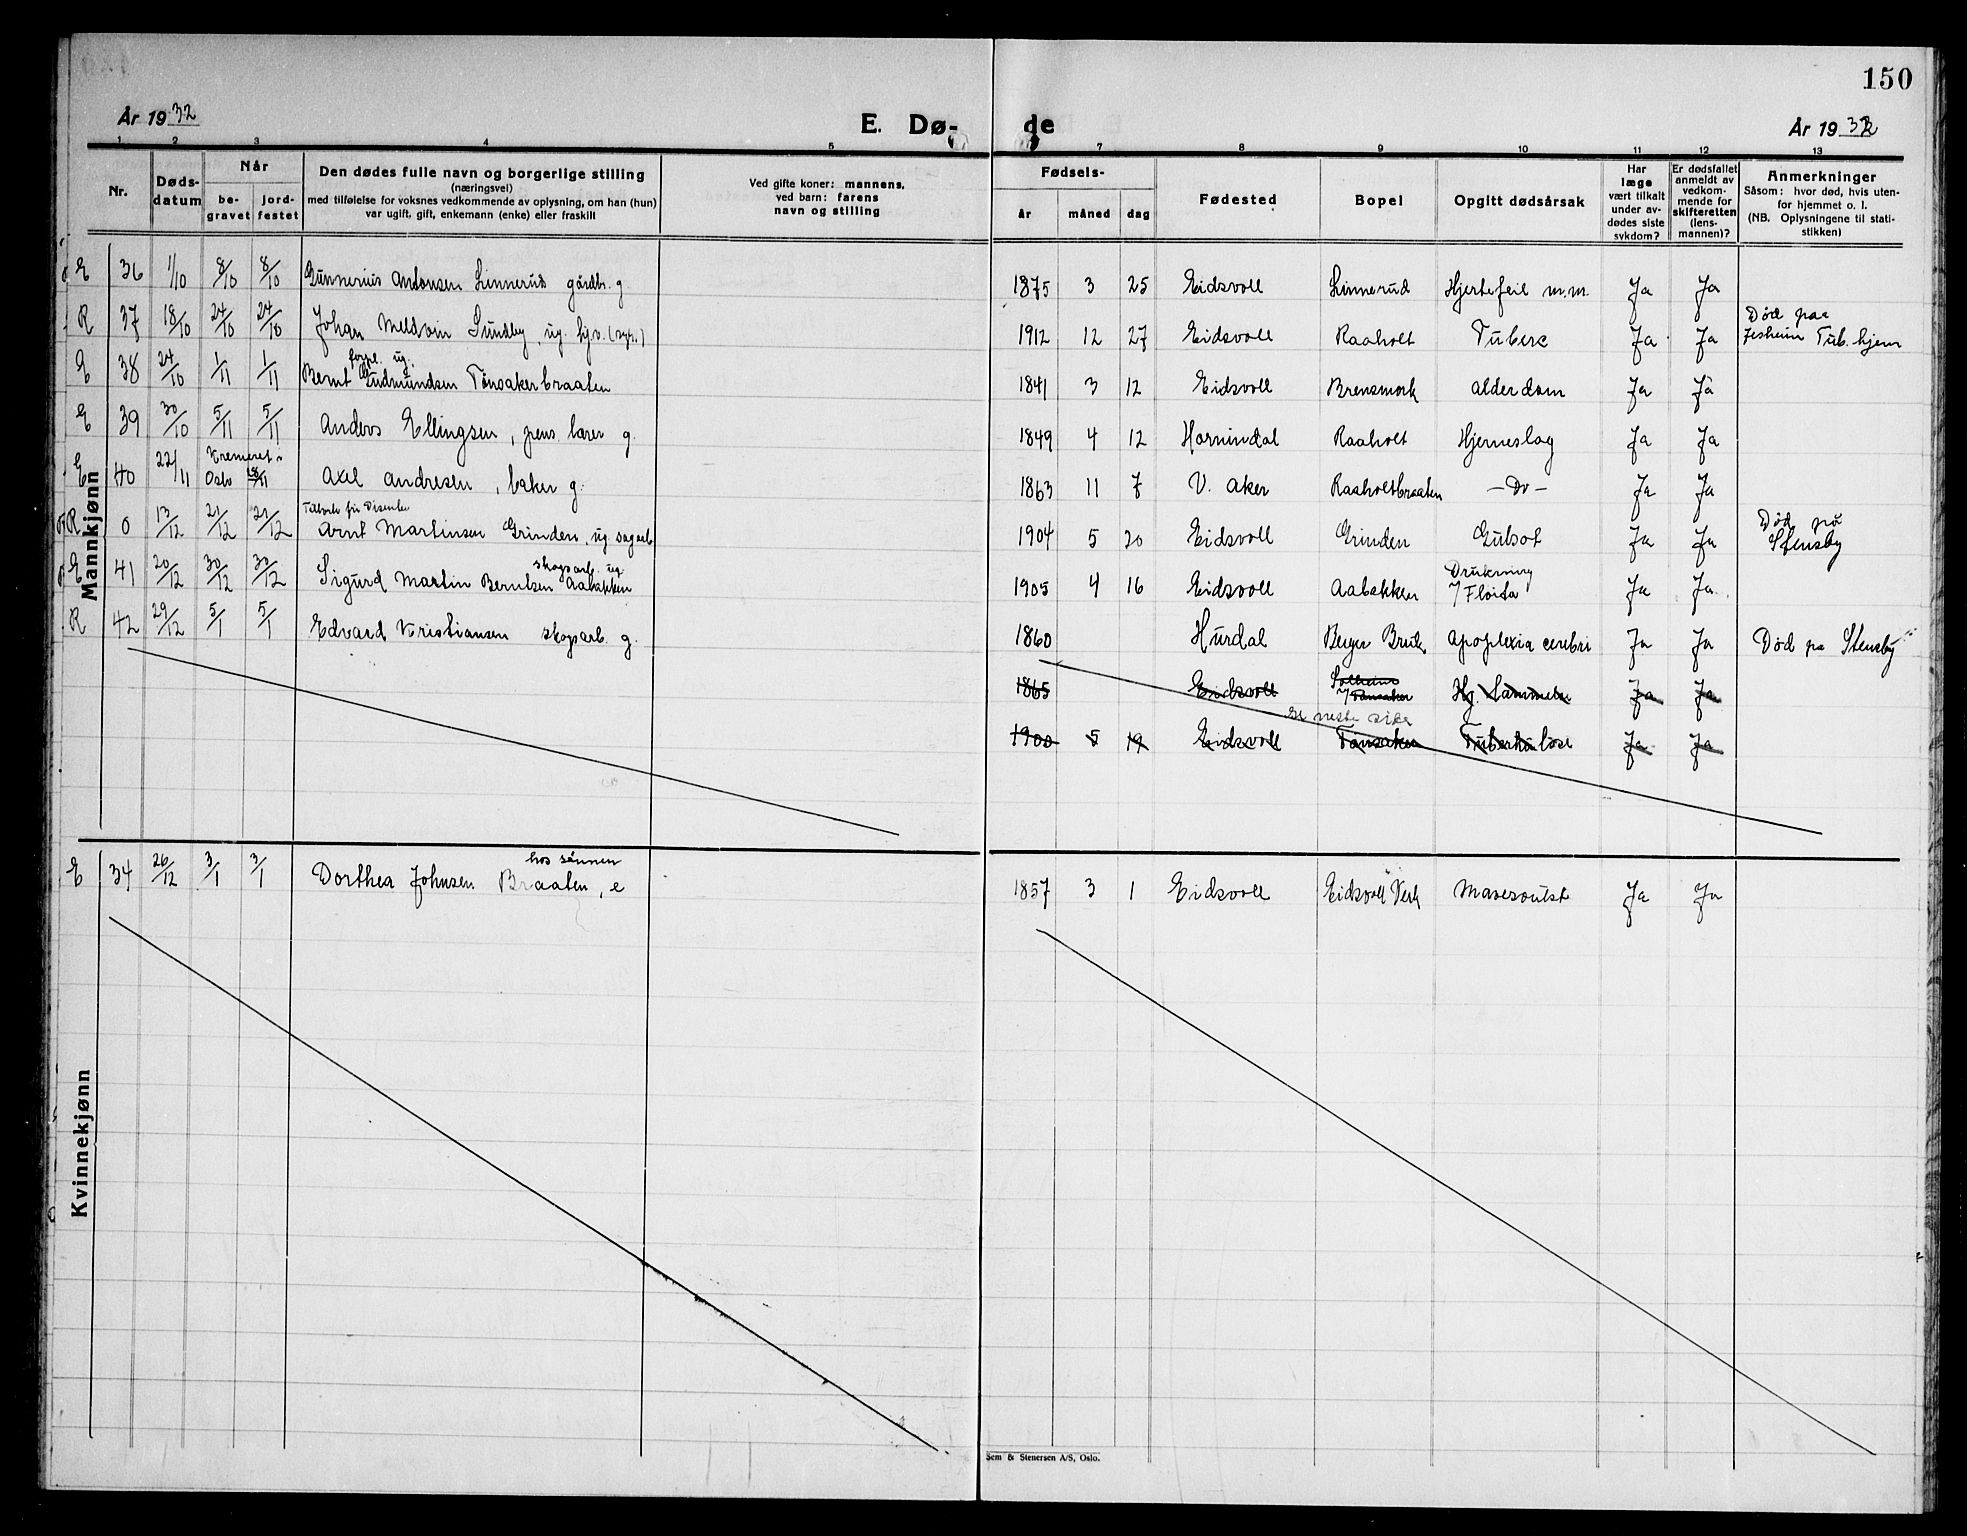 150
År 1932 E. Dø- de År 1932
1 2 3 4 5 7 8 9 10 11 12 13
Nr.
Døds-
datum
Når
be-
gravet
jord-
festet
Den dødes fulle navn og borgerlige stilling
(næringsvei)
med tilføielse for voksnes vedkommende av oplysning, om han (hun)
var ugift, gift, enkemann (enke) eller fraskilt
Ved gifte koner: mannens,
ved barn: farens
navn og stilling
Fødsels-
år måned dag
Fødested
Bopel
Opgitt dødsårsak
Har
læge
vært tilkalt
under av-
dødes siste
sykdom?
Er dødsfallet
anmeldt av
vedkom-
mende for
skifteretten
(lens-
mannen)?
Anmerkninger
Såsom: hvor død, hvis uten-
for hjemmet o. l.
(NB. Oplysningene til stati-
stikken)
Mannkjønn
E 36 1/10 8/10 8/10 Gunnerius Antonsen Linnerud gårdbr. g 1875 3 25 Eidsvoll Linnerud Hjertefeil m.m. Ja Ja
R 37 18/10 24/10 24/10 Johan Meldvin Sundby, ug. 1912 12 27 Eidsvoll Raaholt Tuberc Ja Ja Død paa
Jesheim Tub. hjem
forpl. ug.
E 38 24/10 1/11 1/11 Bernt Gudmundsen Tönsakerbraaten 1841 3 12 Eidsvoll Brensmork Alderdom Ja Ja
E 39 30/10 5/11 5/11 Anders Ellingsen, pens. lærer g. 1849 4 12 Hornindal Raaholt Hjerneslag Ja Ja
E 40 22/11 Kremert Oslo 28/11 Axel Andresen, baker g. 1863 11 7 V. Aker Raaholtbraaten —Do— Ja Ja
R 0 13/12 21/12 21/12 Arnt Martinsen Grinden, ug. sagarb 1904 5 20 Eidsvoll Grinden Gulsot Ja Ja Død på
Stensby
skogsarb. ug.
E 41 20/12 30/12 30/12 Sigurd Martin Berntsen Aabakken 1905 4 16 Eidsvoll Aabakken Drukning
I Fløita Ja Ja
R 42 29/12 5/1 5/1 Edvard Kristiansen skogsarb. g. 1860 Hurdal Berger Bruk Apoplexia cerebri Ja Ja Død på Stensby
1865 Eidsvoll Solheim
Tönsaker Hj. Lammelse Ja Ja
se neste side
1900 5 19 Eidsvoll Tönsaker Tuberkulose Ja Ja
Kvinnekjønn
hos sønnen
E 34 26/12 3/1 3/1 Dorthea Johnsen Braaten, e 1857 3 1 Eidsvoll Eidsvoll Verk Mavesvulst Ja Ja
Sem & Stenersen A/S, Oslo.